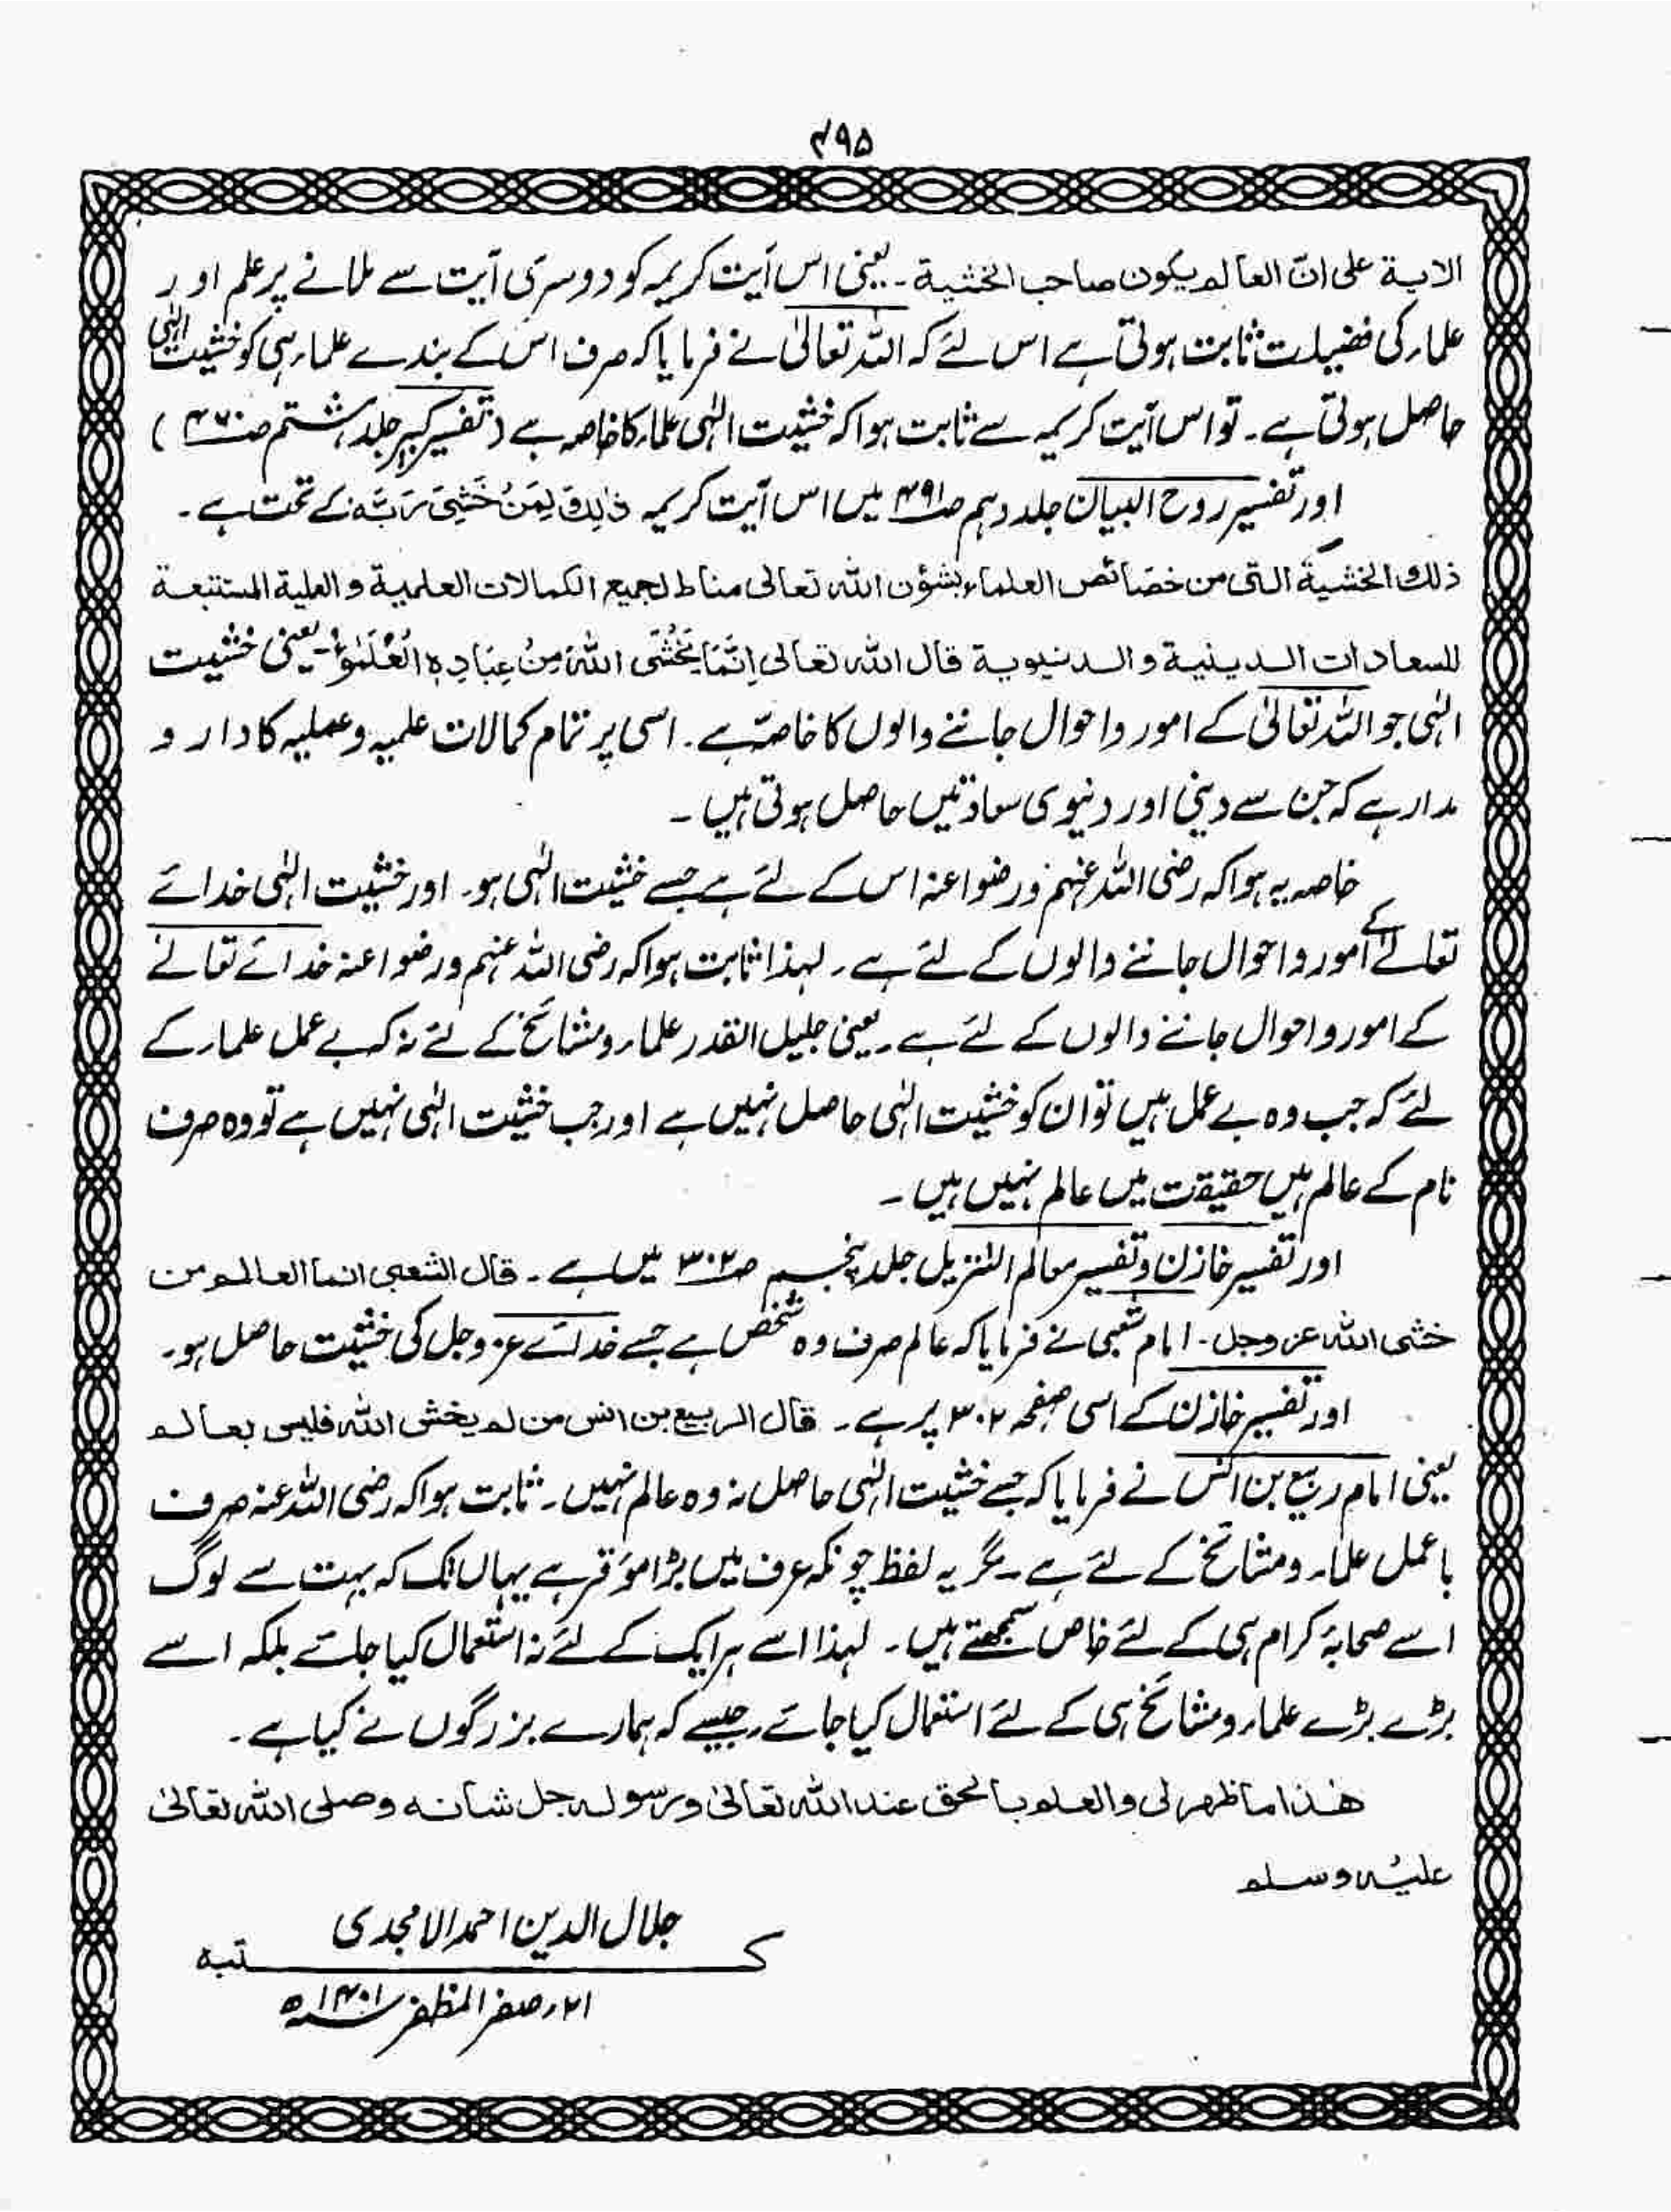 ۴۹۵
الایة علی انّ العالم یکون صاحب الخشیة ۔ یعنی اس آیت کریمہ کو دوسری آیت سے ملانے پر علم اور
علماء کی فضیلت ثابت ہوتی ہے اس لئے کہ اللہ تعالیٰ نے فرمایا کہ صرف اس کے بندے علماء ہی کو خشیت الٰہی
حاصل ہوتی ہے ۔ تو اس آیت کریمہ سے ثابت ہوا کہ خشیت الٰہی علماء کا خاصہ ہے (تفسیر کبیر جلد ہشتم ص۴۷۰)
اور تفسیر روح البیان جلد دہم ص۴۹۱ میں اس آیت کریمہ ذٰلِكَ لِمَنْ خَشِیَ رَبَّهٗ کے تحت ہے ۔
ذلك الخشیة التی من خصائص العلماء بشؤن اللہ تعالی مناط لجمیع الکمالات العلمیة و العملیة المستتبعة
للسعادات الدینیة و الدنیویة قال اللہ تعالی اِنَّمَا یَخْشَی اللّٰهَ مِنْ عِبَادِهِ الْعُلَمٰٓؤُا ۔ یعنی خشیت
الٰہی جو اللہ تعالیٰ کے امور و احوال جاننے والوں کا خاصّہ ہے ۔ اسی پر تمام کمالات علمیہ و عملیہ کا دار و
مدار ہے کہ جن سے دینی اور دنیوی سعادتیں حاصل ہوتی ہیں ۔
خاصہ یہ ہوا کہ رضی اللہ عنہم و رضوا عنہ اس کے لئے ہے جسے خشیت الٰہی ہو ۔ اور خشیت الٰہی خدائے
تعالےٰ کے امور و احوال جاننے والوں کے لئے ہے ۔ لہذا ثابت ہوا کہ رضی اللہ عنہم و رضوا عنہ خدائے تعالےٰ
کے امور و احوال جاننے والوں کے لئے ہے ۔ یعنی جلیل القدر علماء و مشائخ کے لئے نہ کہ بے عمل علماء کے
لئے کہ جب وہ بے عمل ہیں تو ان کو خشیت الٰہی حاصل نہیں ہے اور جب خشیت الٰہی نہیں ہے تو وہ صرف
نام کے عالم ہیں حقیقت میں عالم نہیں ہیں ۔
اور تفسیر خازن و تفسیر معالم التنزیل جلد پنجم ص۳۰۲ میں ہے ۔ قال الشعبی انما العالم من
خشی اللہ عز وجل ۔ امام شعبی نے فرمایا کہ عالم صرف وہ شخص ہے جسے خدائے عز و جل کی خشیت حاصل ہو ۔
اور تفسیر خازن کے اسی صفحہ ۳۰۲ پر ہے ۔ قال الربیع بن انس من لم یخش اللہ فلیس بعالم
یعنی امام ربیع بن انس نے فرمایا کہ جسے خشیت الٰہی حاصل نہ وہ عالم نہیں ۔ ثابت ہوا کہ رضی اللہ عنہ صرف
با عمل علماء و مشائخ کے لئے ہے ۔ مگر یہ لفظ چونکہ عرف میں بڑا مؤقر ہے یہاں تک کہ بہت سے لوگ
اسے صحابۂ کرام ہی کے لئے خاص سمجھتے ہیں ۔ لہذا اسے ہر ایک کے لئے نہ استعمال کیا جائے بلکہ اسے
بڑے بڑے علماء و مشائخ ہی کے لئے استعمال کیا جائے جیسے کہ ہمارے بزرگوں نے کیا ہے ۔
هٰذا ما ظهر لی و العلم بالحق عند اللہ تعالیٰ و رسولہ جل شانہ و صلی اللہ تعالیٰ
علیہ وسلم
جلال الدین احمد الامجدی
کتبہ
۲۱ر صفر المظفر ۱۴۰۱ھ